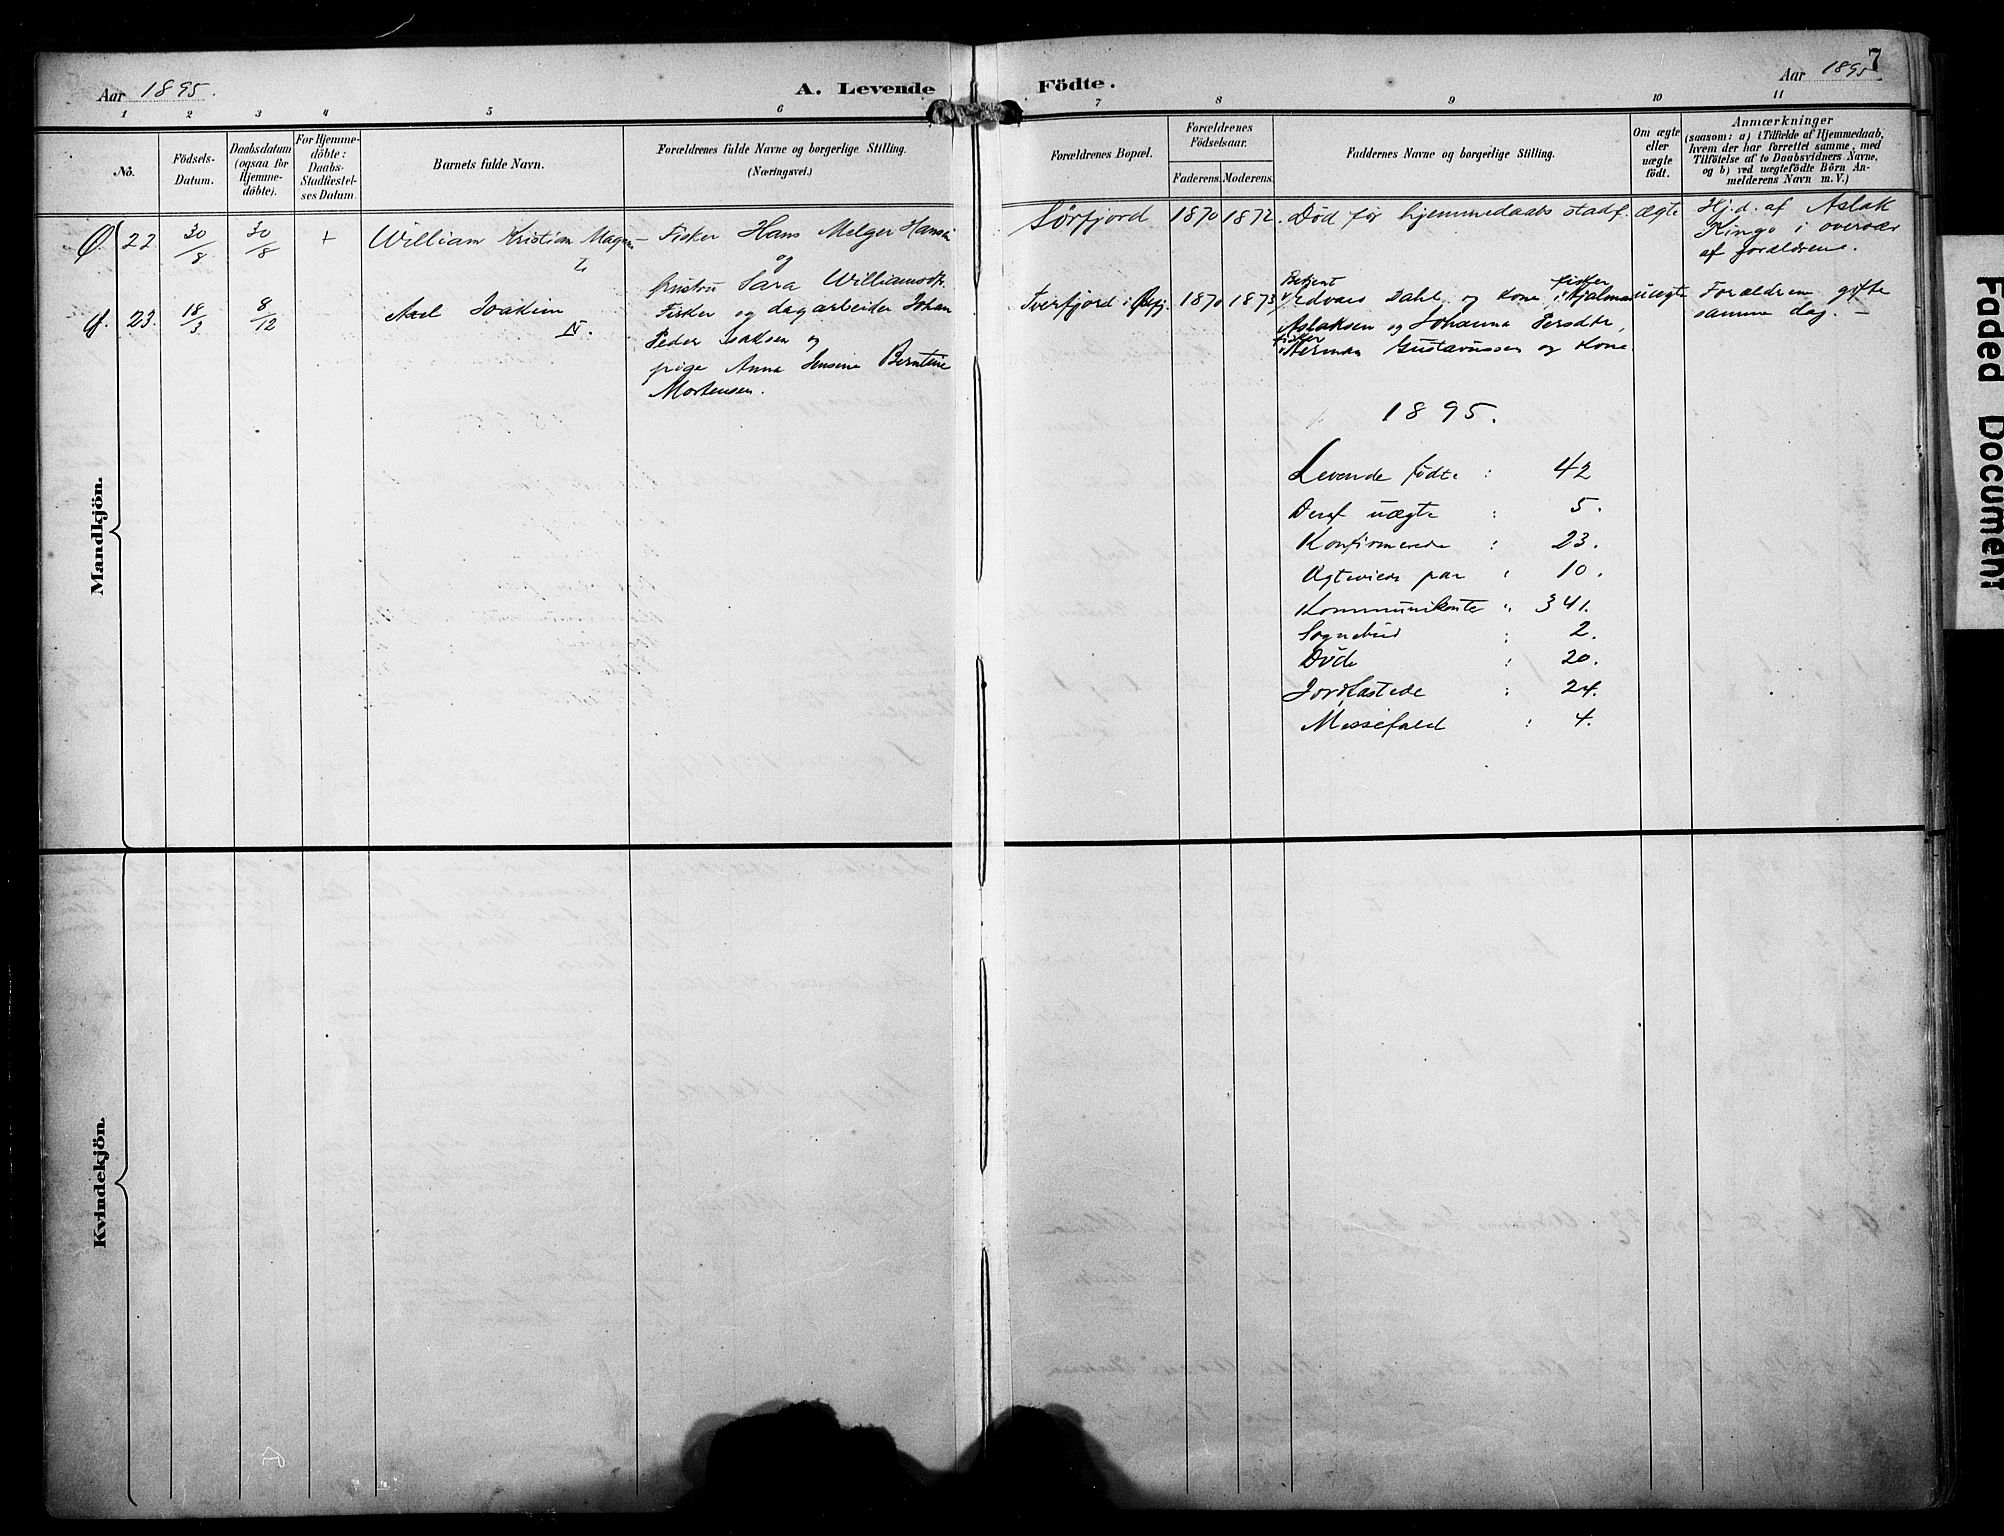 Aar 1895.
A. Levende Födte.
Aar 1895
7
1 2 3 4 5 6 7 8 9 10 11
No.
Födsels-
Datum.
Daabsdatum
(ogsaa for
Hjemme-
döbte).
For Hjemme-
döbte:
Daabs-
Stadfæstel-
ses Datum.
Barnets fulde Navn.
Forældrenes fulde Navne og borgerlige Stilling.
(Næringsvei.)
Forældrenes Bopæl.
Forældrenes
Födselsaar.
Faderens. Moderens.
Faddernes Navne og borgerlige Stilling.
Om ægte
eller
uægte
födt.
Anmærkninger
(saasom: a) i Tilfælde af Hjemmedaab,
hvem der har forrettet samme, med
Tilföielse af to Daabsvidners Navne,
og b) ved uægtefödte Börn An-
melderens Navn m. V.)
Mandkjön.
Ø. 22 30/8 30/8 + William Kristian
Fisker Hans Melger
og
Hustru Sara
Sørfjord 1870 1872. Død før hjemmedaabs stadf. ægte
Hj.d. af Aslak
Kingo i overvær
af forældrene.
Ø. 23. 18/3 8/12 Axel Joakim
IV.
Fisker og dagarbeider Johan
Peder Isaksen og
pige Anna Jensine Berntine
Mortensen.
Tverfjord i 1870 1873
Betjent
Edvard Dahl og Kone, fisker Hjalmar
Aslaksen og Johanna Persdtr,
fisker
Herman Gustavussen og Kone.
uægte
Forældrene gifte
samme dag. —
1895.
Levende fødte : 42
Deraf uægte : 5.
Konfirmerede : 23.
Ægteviede par : 10.
Kommunikanter : 341.
Sognebud : 2.
Døde : 20.
Jordfæstede : 24.
Messefald : 4.
Kvindekjön.
Faded Document